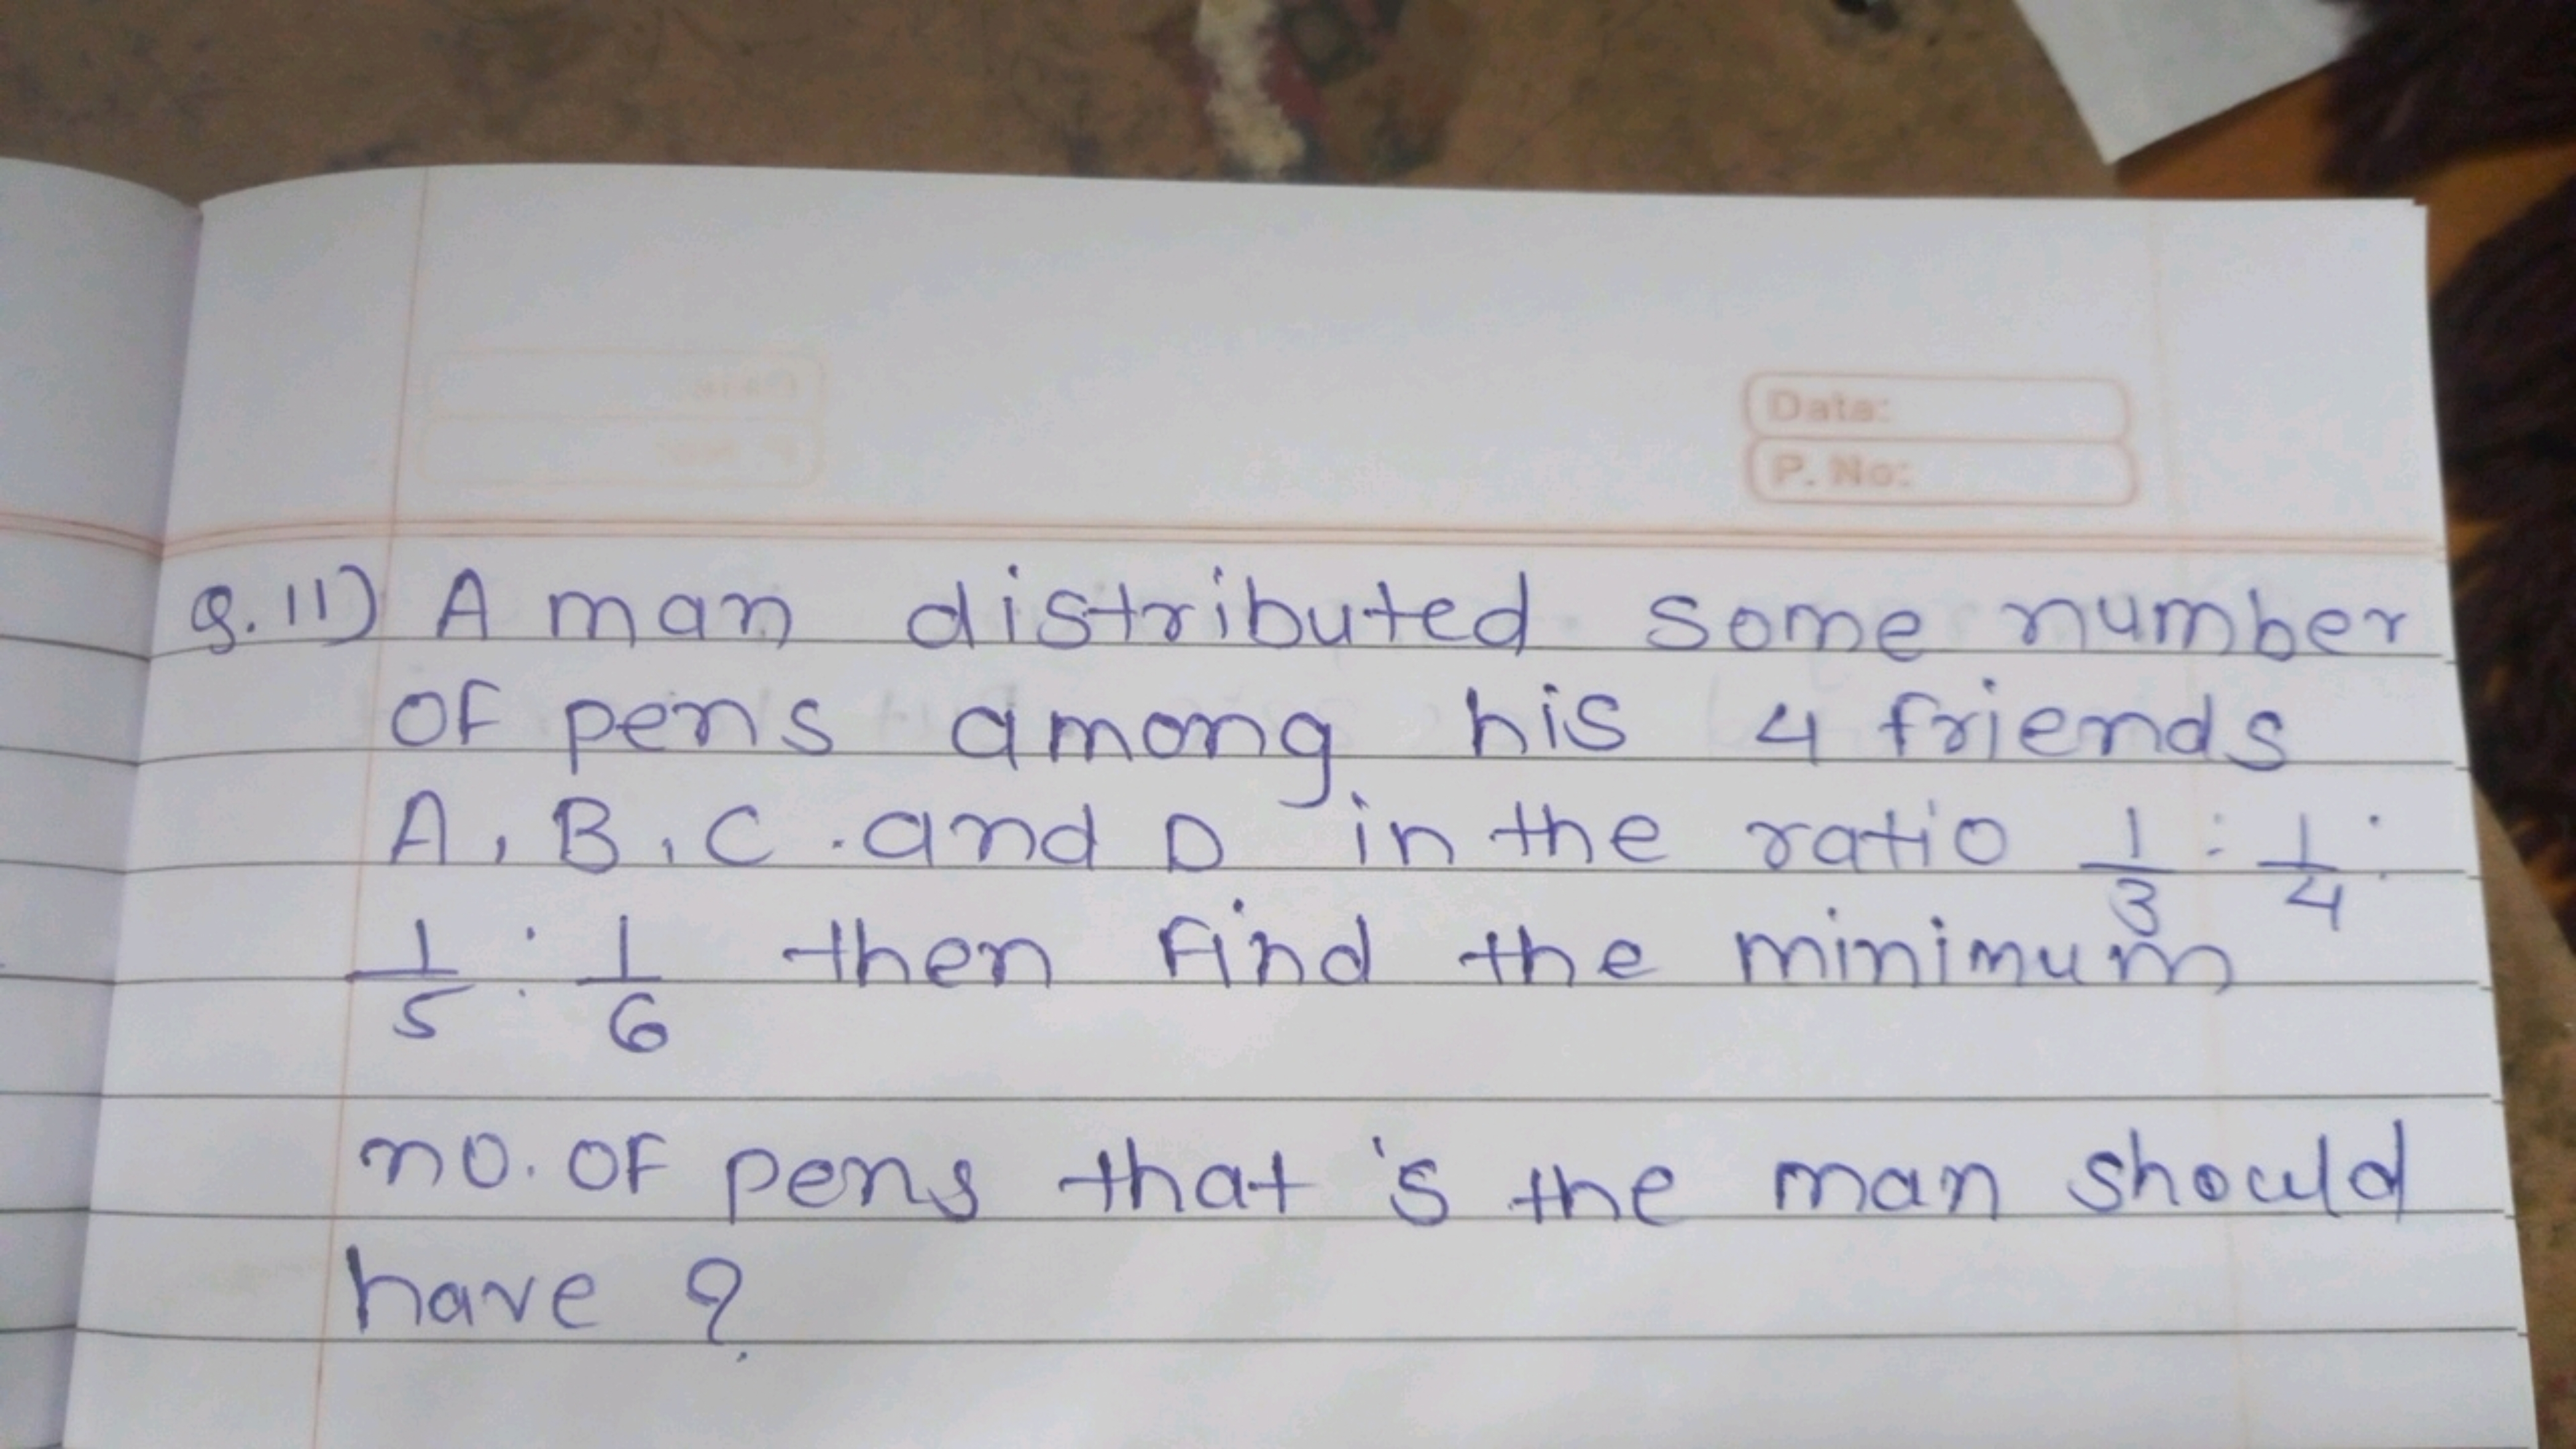 Date:
P. No:
Q.11) A man distributed some number
of pens among his 4 friends
A, B, C and D in the ratio 1/3 : 1/4 :
1/5 : 1/6 then find the minimum
no. of pens that 's the man should
have ?